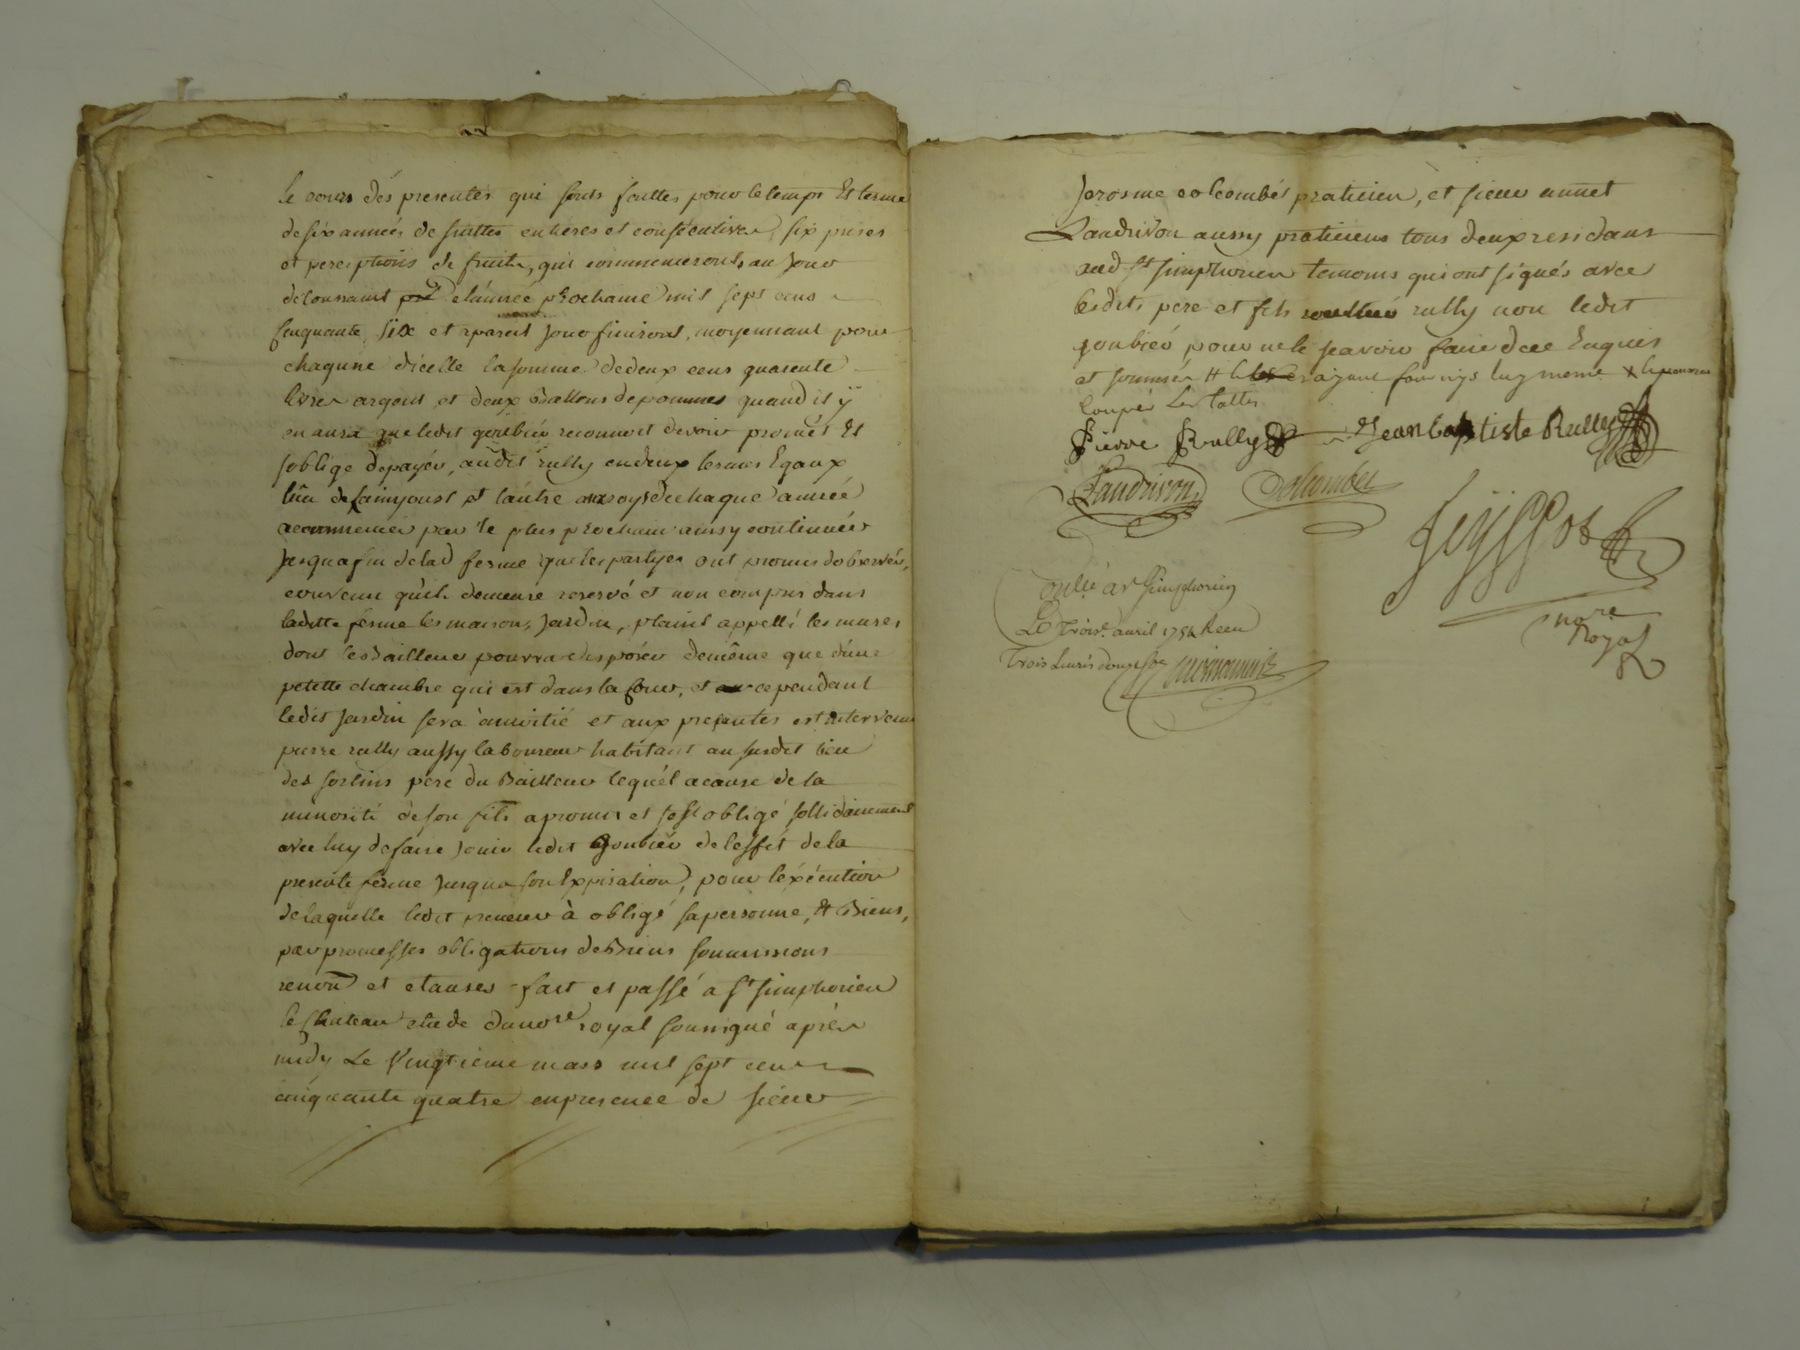 le cours dés presentes qui sonts faittes pour le temps Et terme
de six années de suittes entieres et consécutives, six prises
et perceptions de fruits, qui commenceronts au Jour
de toussaint de lánnée prochaine mil sept cens
sinquante six et apareil Jour finiront, moyennant pour
chaqune dícelle la somme de deux cens quarente
livres argent et deux Ballons de pommes quand il ÿ
en aura que ledit goubier reconnoit devoir promet Et
soblige de payér, audit rully en deux termes Egaux
lún de saint Jean et láutre aux roys de chaque année
a commencer par le plus prochain ainsy continuér
Jusqua fin de lad ferme que les partyes ont promis dobservér,
convenu qúil demeure reservé et non compris dans
laditte férme les maison, Jardin, plaint appellé les mures
dont le Bailleur pourra disposér demême que dúne
petitte chambre qui est dans la Cour, et cependant
ledit Jardin sera amoitié et aux presantes est intervenu
pierre rully aussy laboureur habitant au susdit lieu
des fortins pere du Bailleur lequél acause de la
minorité de son fils a promis et sest obligé sollidairement
avec luy de faire Jouir ledit Goubier de leffét de la
presente ferme Jusqua son Expiration, pour léxécution
de laquelle ledit preneur à obligé sa personne, & Biens,
par promesses obligations de Biens soumissions
renon et clauses fait et passé a St simphorien
le Chateau etude du nore royal soussigné aprés
midy Le Vingtieme mars mil sept cens
cinquante quatre en presence de sieur
Jerosme colcombét praticien, et sieur annet
Landrivon aussy praticiens tous deux residans
aud St simphorien temoins qui ont signés avec
lesdits pere et fils rully non ledit
goubier pour ne le scavoir faire de ce Enquis
et sommér ayant fournys luy meme
Pierre Rully Jean baptiste Rully
Landrivon Colcombet
not re
Royal
Conllé a St Simphorien
Le Trois.e avril 1754 Receu
Trois Livres douze s